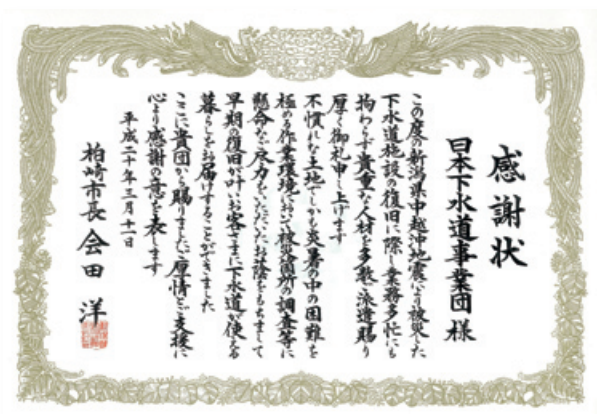 感謝状
日本下水道事業団 様
この度の新潟県中越沖地震により被災した
下水道施設の復旧に際し業務多忙にも
拘わらず貴重な人材を多数ご派遣賜り
厚く御礼申し上げます
不慣れな土地でしかも炎暑の中の困難を
極める作業環境において被災箇所の調査等に
懸命なご尽力をいただいたお蔭をもちまして
早期の復旧が叶いお客さまに下水道が使える
暮らしをお届けすることができました
ここに貴団から賜りましたご厚情とご支援に
心より感謝の意を表します
平成二十年三月十一日
柏崎市長 会田 洋